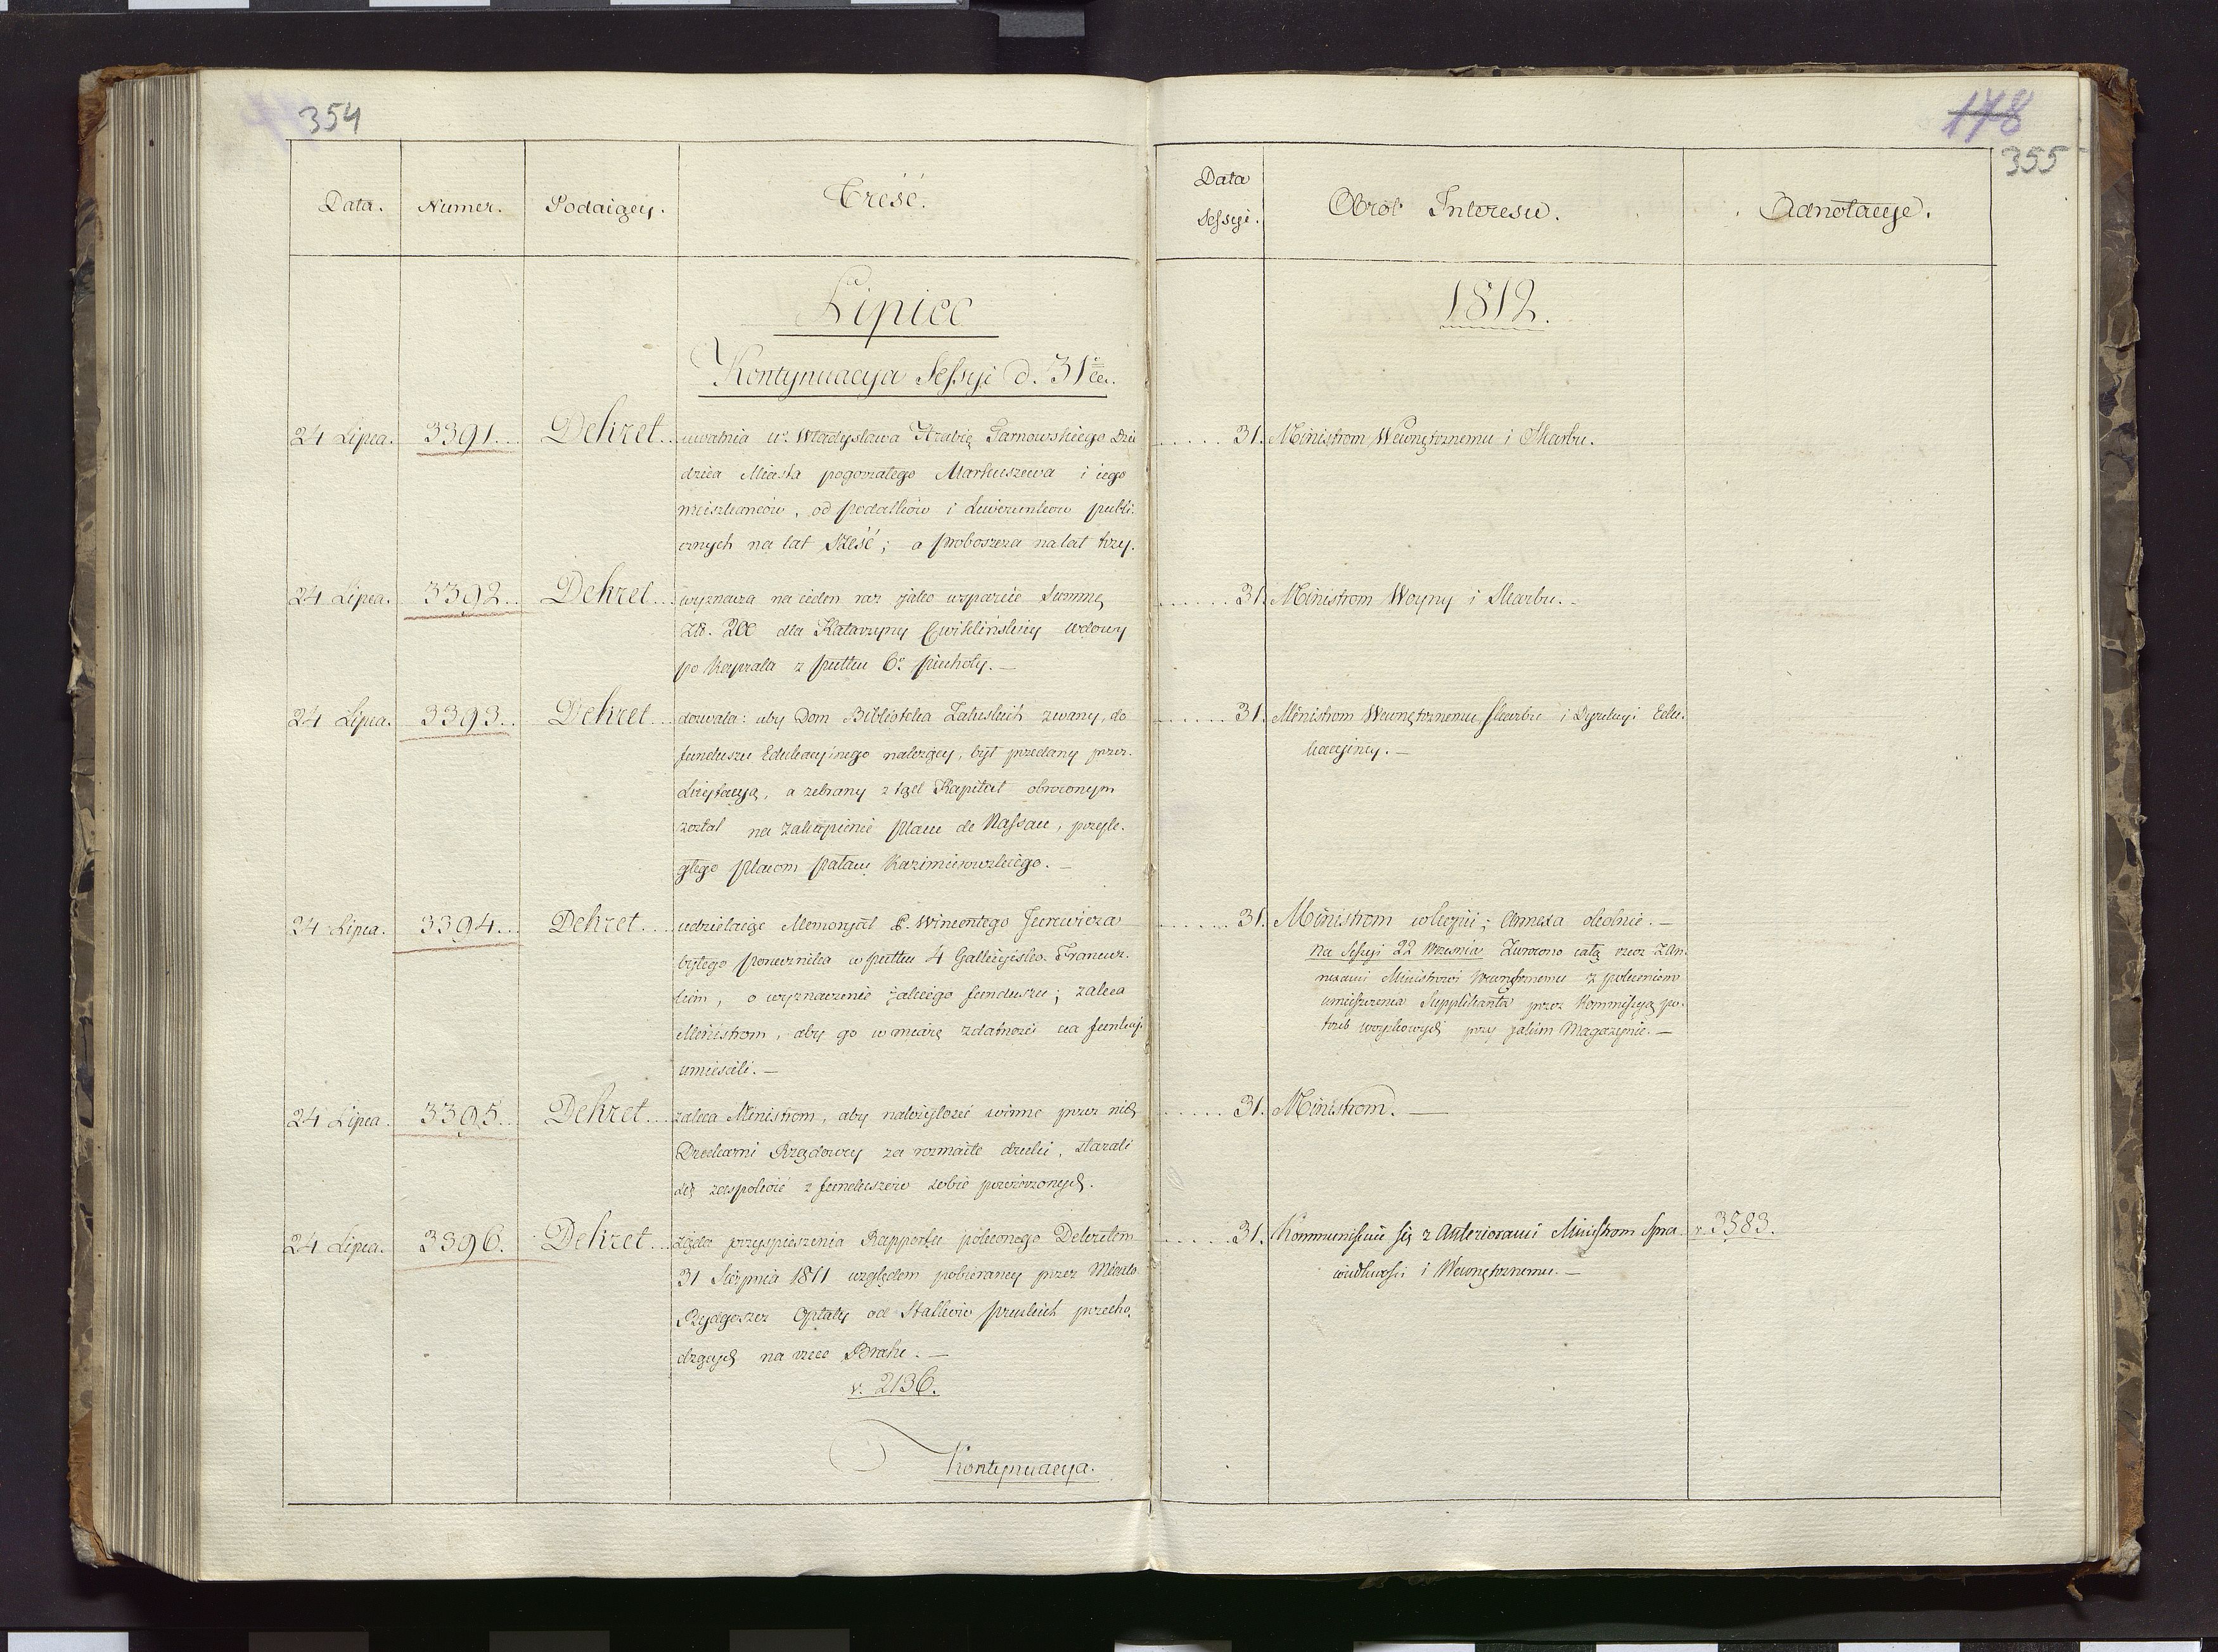 354
Data.
Numer.
Podaiący.
Treść.
Lipiec
Kontynuacya Sessyi d. 31
24 Lipca. 3391... Dekret... uwalnia Władysława Hrabię Tarnowskiego Dzie
dzica Miasta pogorzałego Markuszewa i iego
mieszkańców, od podatków i Liwerunków publi-
cznych na lat Sześć; a Proboszcza na lat trzy.
24 Lipca. 3392... Dekret... wyznacza na ieden raz jako wsparcie Summę
Zł. 200 dla Katarzyny Cwiklińskiey wdowy
po Kapralu z pułku 6º piechoty. —
24 Lipca. 3393... Dekret... dozwala: aby Dom Biblioteka Załuskich zwany, do
funduszu Edukacyinego należący, był przedany przez
Licytacyą, a zebrany z tąd Kapitał obrocony m
został na zakupienie placu de Nassau, przyle-
głego placom pałacu Kazimierowskiego. —
24 Lipca. 3394... Dekret... udzielaiąc Memoryał P. Wincentego Jurewicza
byłego Porucznika w pułku 4 Gallicyisko-Francuz-
kim, o wyznaczenie jakiego funduszu; zaleca
Ministrom, aby go w miarę zdatności na funkcyi
umieścili. —
24 Lipca. 3395... Dekret... zaleca Ministrom, aby należytość winne przez nich
Drukarni Rządowey za rozmaite druki, starali
się zaspokoić z funduszów sobie powierzonych.
24 Lipca. 3396. Dekret... żąda przyspieszenia Rapportu poleconego Dekretem
31 Sierpnia 1811 względem pobieraney przez Miasto
Bydgoszcz Opłaty od Statków pruskich przecho-
dzących na rzece Brahe. —
v. 2136.
Kontynuacya.
178
355
Data
Sessyi.
Obrót Interesu.
Adnotacye.
1812.
..... 31. Ministrom Wewnętrznemu i Skarbu.
..... 31. Ministrom Woyny i Skarbu. —
..... 31. Ministrom Wewnętrznemu, Skarbu i Dyrekcyi Edu-
kacyiney. —
..... 31. Ministrom Annexa —
Na Sessyi 22 Września Zwrocono całą rzecz z An-
nexami Ministrowi Wewnętrznemu z poleceniem
umieszczenia Supplikanta przez Kommissyą po-
trzeb woyskowych przy jakim Magazynie. —
..... 31. Ministrom. —
..... 31. Kommunikuie się z Anterioraui Ministrom Spra- v. 3583.
wiedliwości i Wewnętrznemu. —